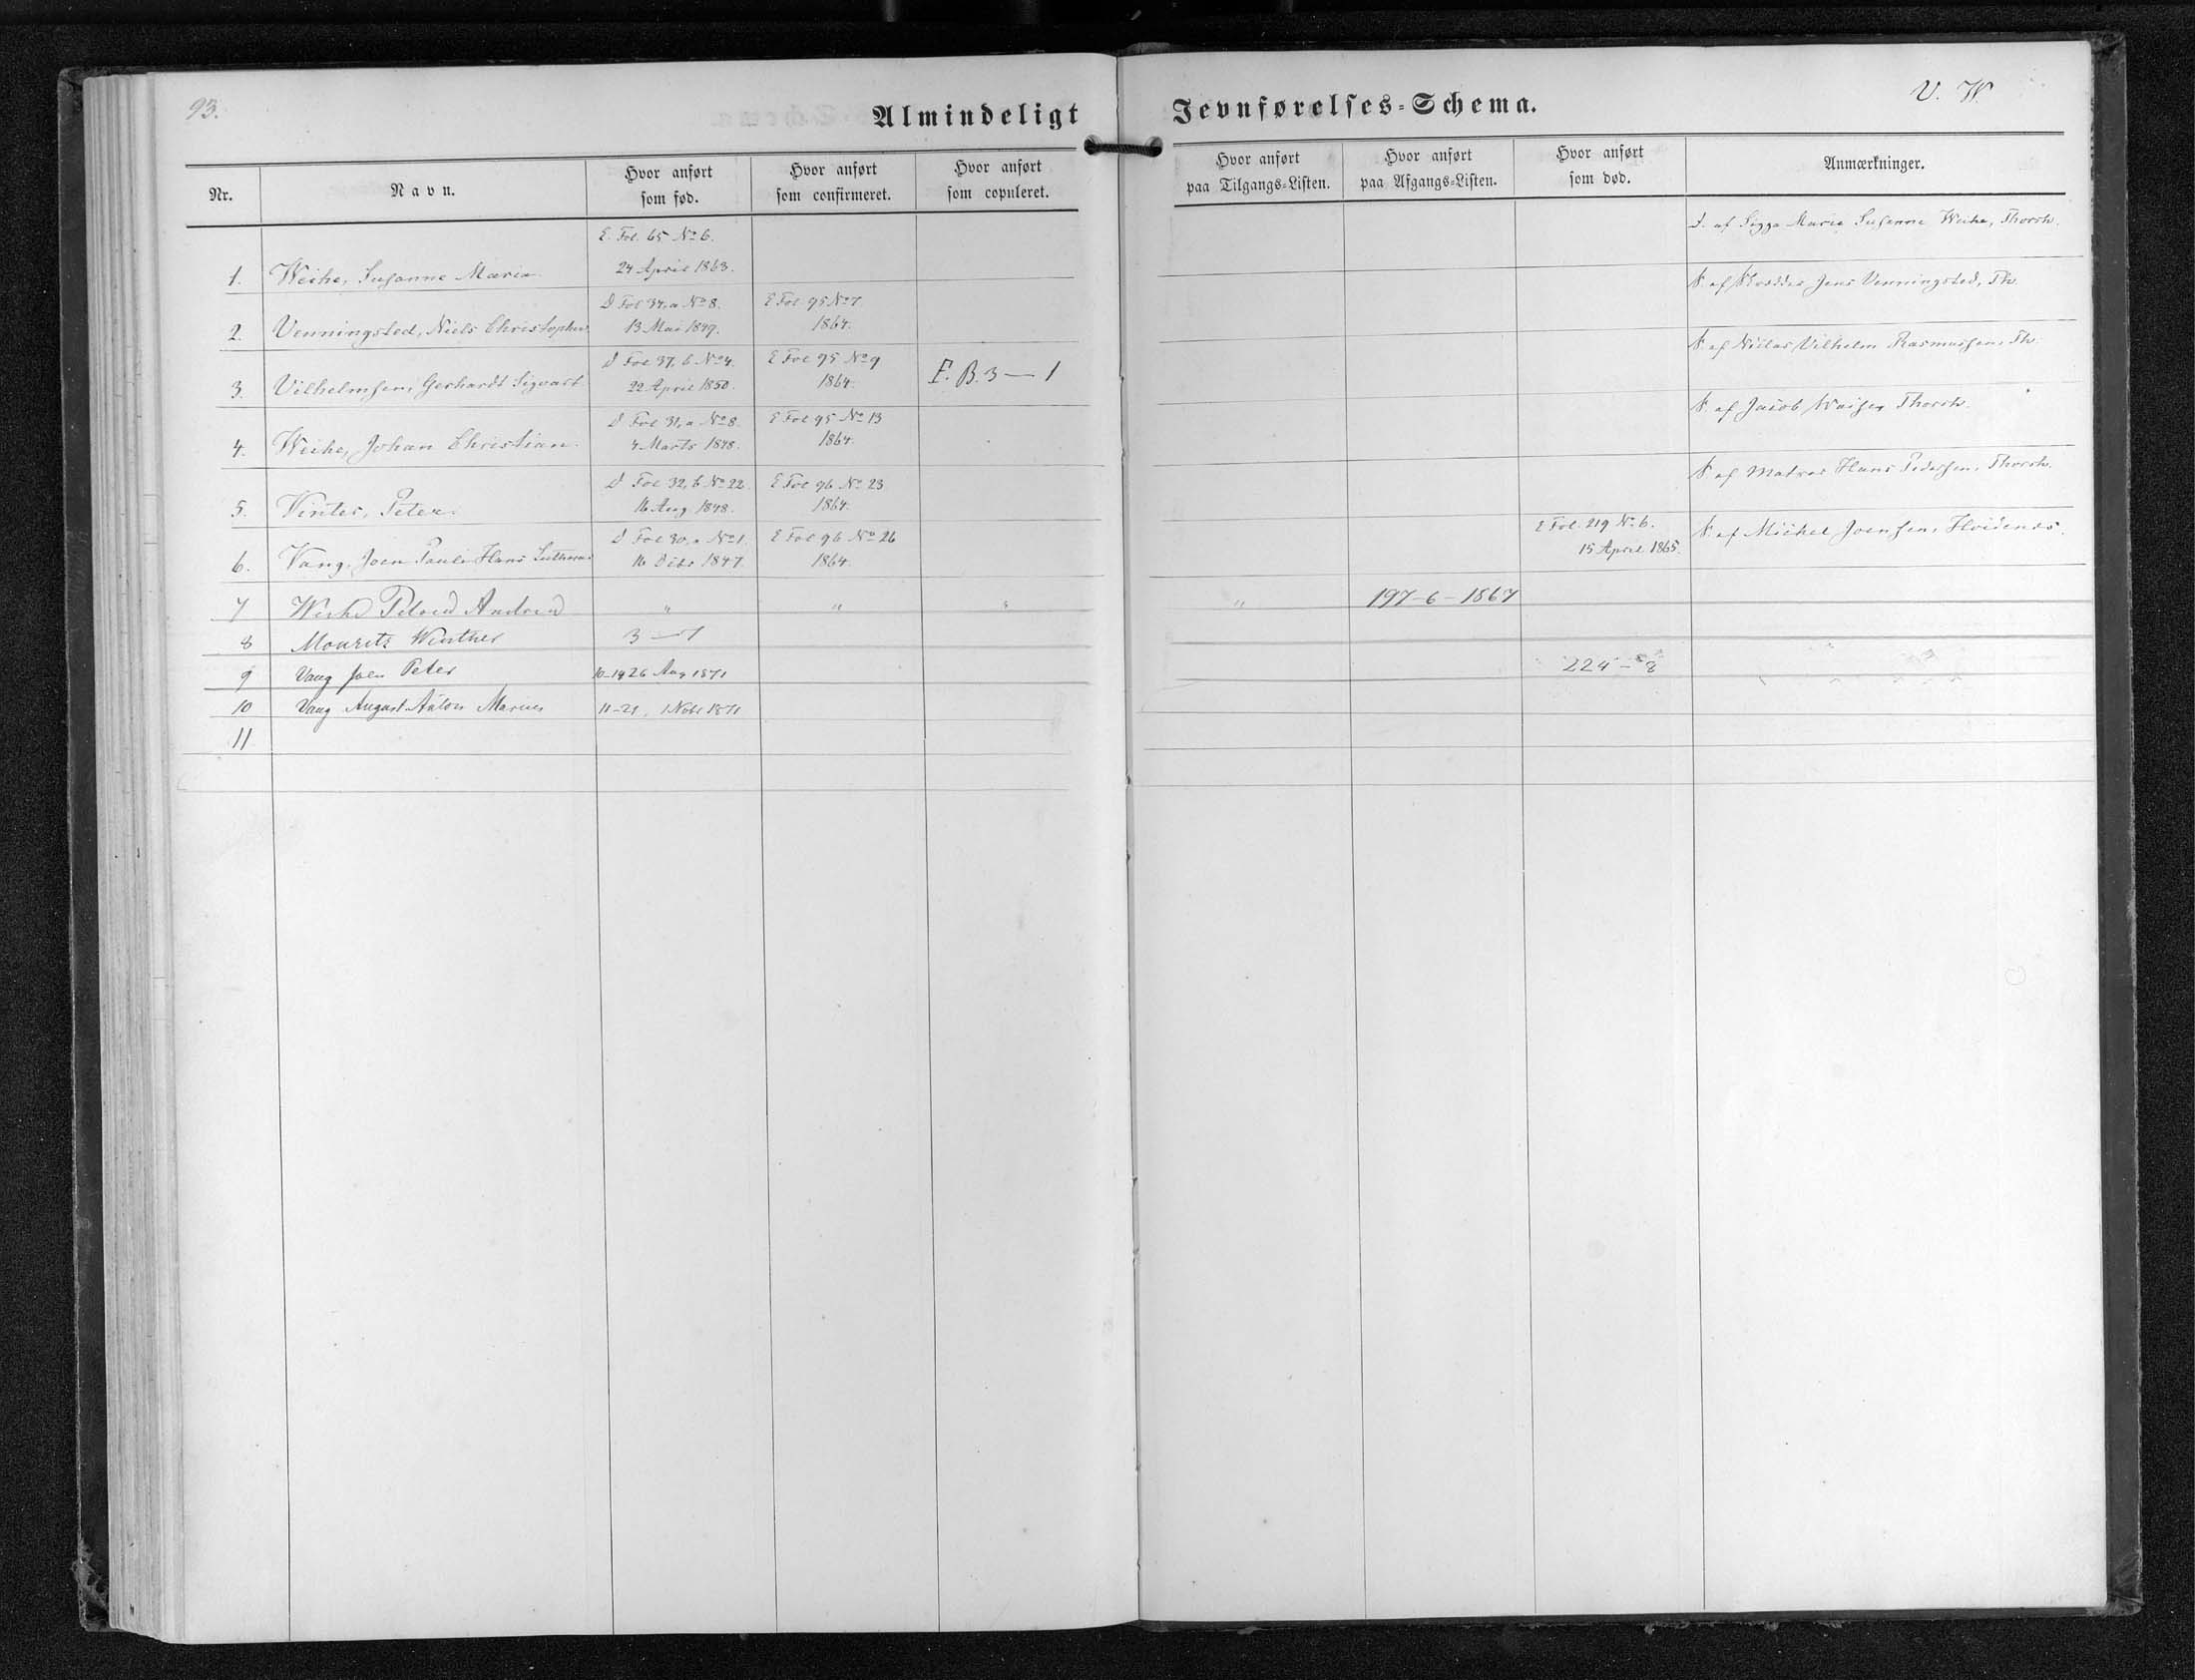 93.
V. W.
Almindeligt Jevnførelses-Schema.
Nr.
Navn.
Hvor anført som fød.
Hvor anført som confirmeret.
Hvor anført som copuleret.
Hvor anført paa Tilgangs-Listen.
Hvor anført paa Afgangs-Listen.
Hvor anført som død.
Anmærkninger.
1. Weihe, Susanne Maria E. Fol. 65 No 6. 24 April 1863. D. af Sigga Maria Susanne Weihe, Thorsh.
2. Venningsted, Niels Christopher D Fol 34, a No 8. 13 Mai 1849. E Fol 95 No 7 1864. S. af Jens Venningsted, Th.
3. Vilhelmsen, Gerhardt Sigvart D Fol 37, b No 4. 22 April 1850. E Fol 95 No 9 1864. F. B. 3 — 1 S. af Niclas Vilhelm Rasmussen, Th.
4. Weihe, Johan Christian D Fol 31, a No 8. 4 Marts 1848. E Fol 95 No 13 1864. S. af Jacob Thorsh.
5. Vinter, Peter D Fol 32, b No 22. 16 Aug 1848. E Fol 96 No 23 1864. S. af Matros Hans Pedersen, Thorsh.
6. Vang, Joen Pauli Hans D Fol 30, a No 1. 16 1847. E Fol 96 No 26 1864. E Fol. 219 No 6. 15 April 1865. S. af Michel Joensen, Hvidenæs.
7 Weihe Andrea " " " " 197-6-1867
8 Mouritz Winther 3 — 1
9 Vang Joen Peter 10-14 26 Aug 1871 224 - 8
10 Vang August Anton Marius 11-21, 1 Nobr 1871
11